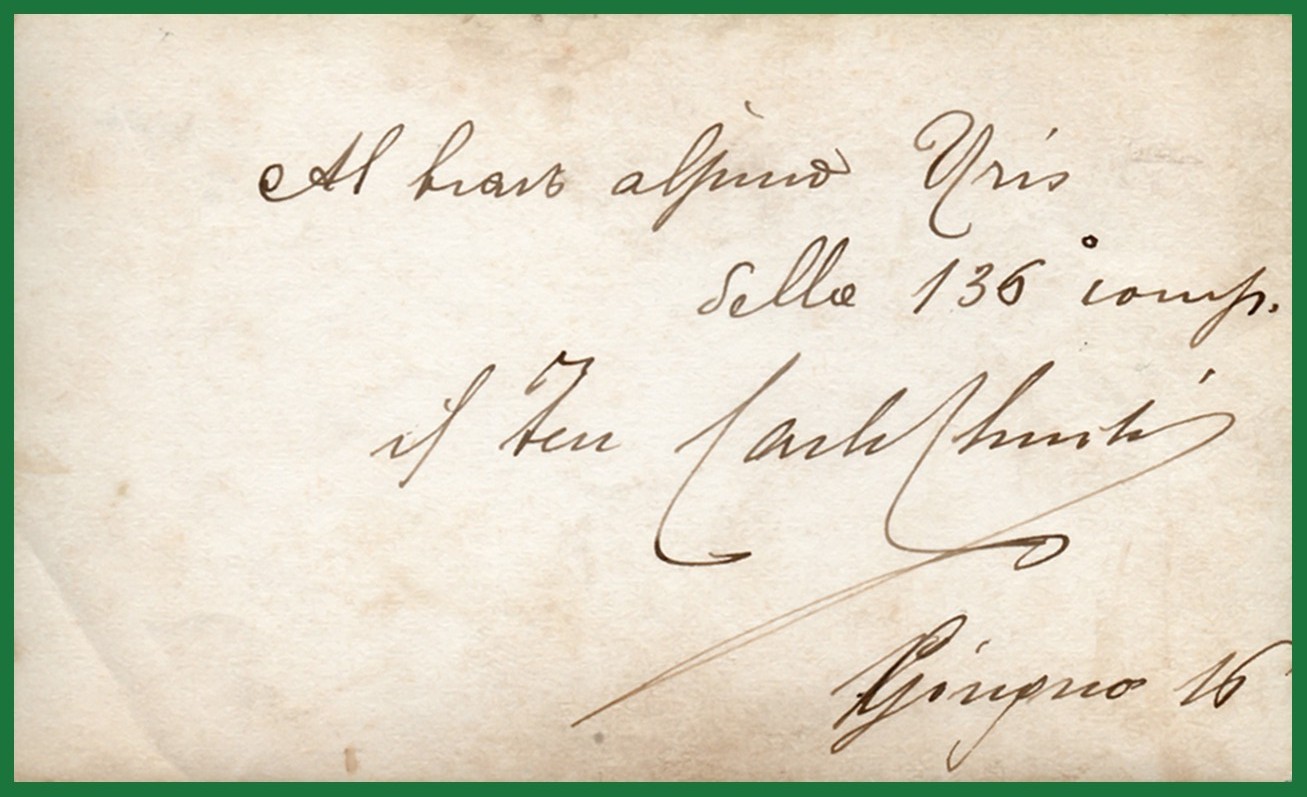 Al bravo alpino Yris
della 136° comp.
il Ten Carlo
Giugno 16